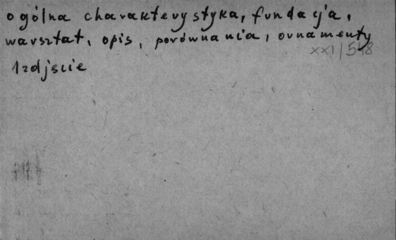 ogólna charakterystyka, fundacja,
warsztat, opis, porównania, ornamenty
XXI/518
1 zdjęcie